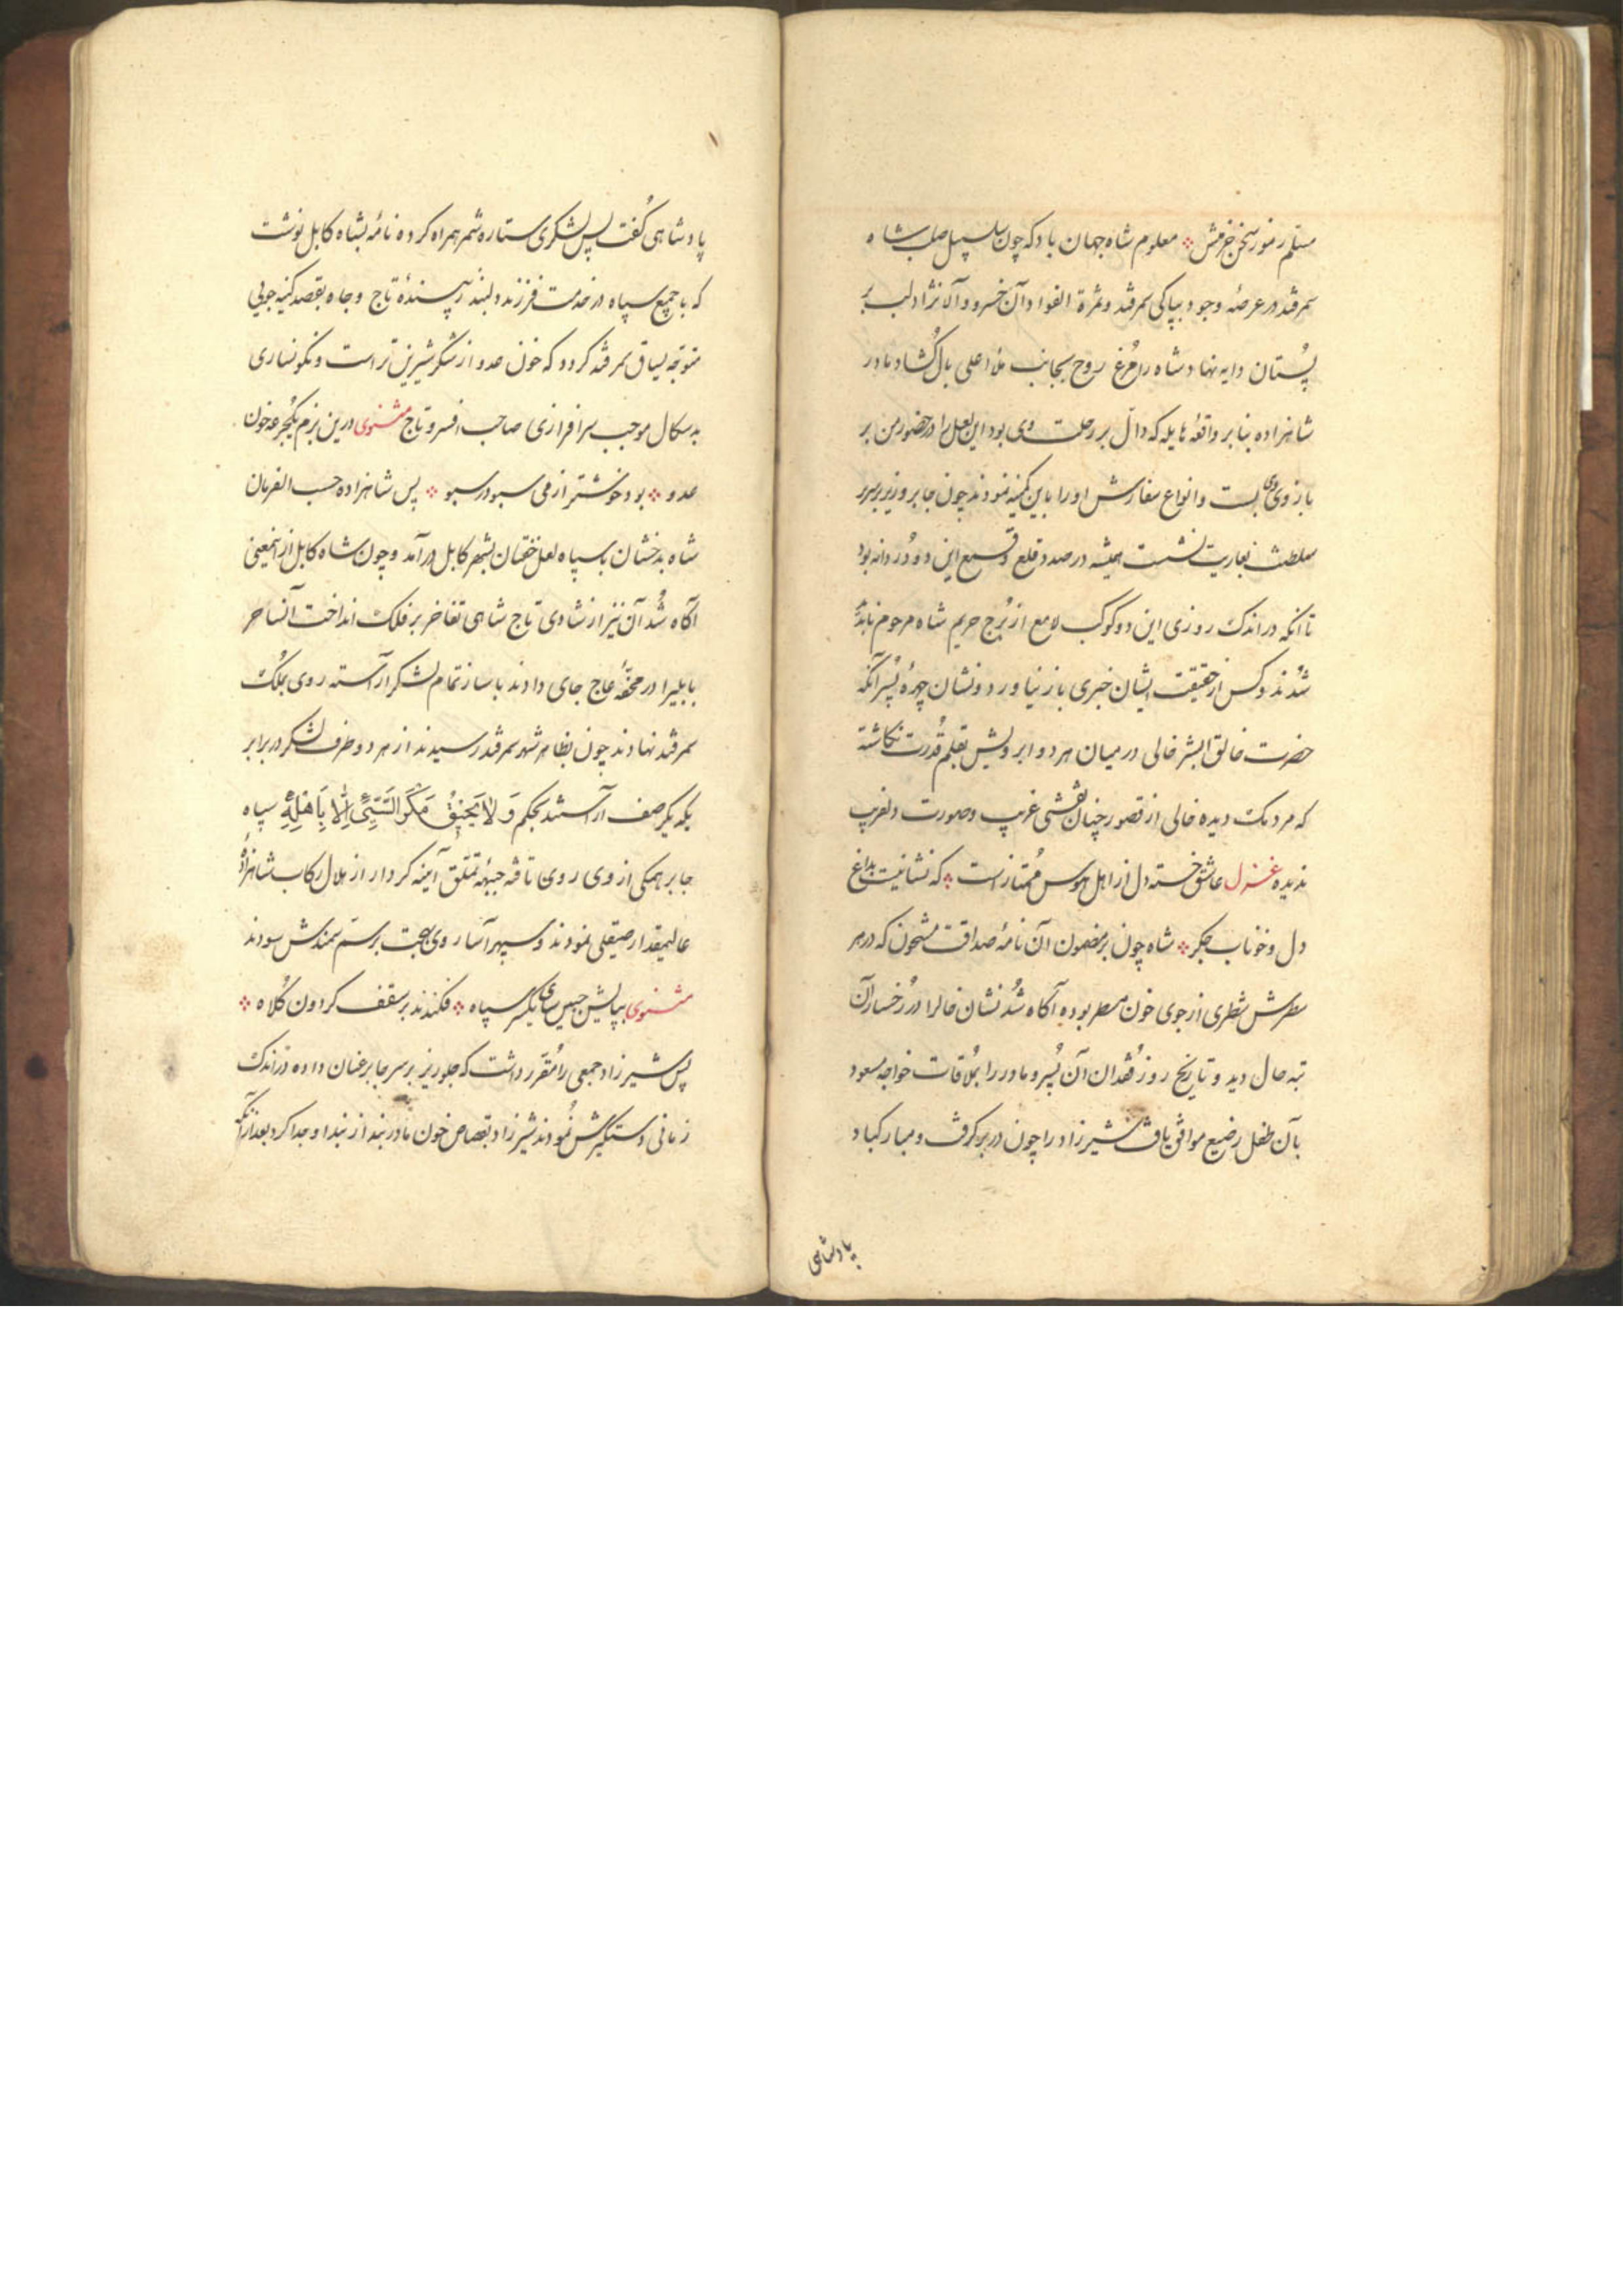 مسلم رموز سخن خرمش معلوم شاه جهان باد که چون سلسبیل صلب شاه
سمرقند در عرصهٔ وجود بپاکی سمر شد و ثمرة الفواد آن خسرو والا نژاد لب بر
پستان دایه نهاد شاه را مرغ روح بجانب ملأ اعلی بال کشاد مادر
شاهزاده بنا بر واقعهٔ هایله که دال بر رحلت وی بود این لعل را در حضور من بر
بازوی وی بست و انواع سفارش او را باین کمینه نمودند چون جابر وزیر بر سریر
سلطنت بعاریت نشست همیشه در صدد قلع و قمع این دو در دانه بود
تا آنکه در اندک روزی این دو کوکب لامع از برج حریم شاه مرحوم ناپدید
شدند و کس از حقیقت ایشان خبری باز نیاورد و نشان چهرهٔ پسر آنکه
حضرت خالق البشر خالی در میان هر دو ابرویش بقلم قدرت نکاشته
که مردمک دیده خالی از قصور چنان نقشی غریب و صورت دلفریب
ندیده غزل عاشق خسته دل از اهل هوس ممتاز است که نشانیست بداغ
دل و خوناب جکر شاه چون بر مضمون آن نامهٔ صداقت مشحون که در هر
سطرش شطری از جوی خون مسطر بوده آکاه شد نشان خال را در رخسار آن
تبه حال دید و تاریخ روز فقدان آن پسر و مادر را بملاقات خواجه مسعود
بآن طفل رضیع موافق یافت شیرزاد را چون در بر کرفت و مبارکباد
پادشاهی
پادشاهی کفت پس لشکری ستاره شمر همراه کرده نامهٔ بشاه کابل نوشت
که با جمیع سپاه در خدمت فرزند دلبند زیبندهٔ تاج و جاه بقصد کینه جویی
متوجه یساق سمرقند کردد که خون عدو از شکر شیرین تر است و نکونساری
بدسکال موجب سرافرازی صاحب افسر و تاج مثنوی درین بزم یکجرعه خون
عدو بود خوشتر از می سبو در سبو پس شاهزاده حسب الفرمان
شاه بدخشان با سپاه لعل خفتان بشهر کابل در آمد و چون شاه کابل از اینمعنی
آکاه شد آن نیز از شادی تاج شاهی تفاخر بر فلک انداخت آنساحر
بابلیرا در محفهٔ عاج جای دادند با ساز تمام لشکر آراسته روی بملک
سمرقند نهادند چون بظاهر شهر سمرقند رسیدند از هر دو طرف لشکر در برابر
یکدیکر صف آراستند بحکم وَلَا یَحِیقُ مَکْرُ السَّیِّئُ اِلَّا بِاَهْلِهِ سپاه
جابر همکی از وی روی تافته جبههٔ تملق آینه کردار از هلال رکاب شاهزادهٔ
عالیمقدار صیقلی نمودند و سپهر آسا روی بهجت بر سم سمندش سودند
مثنوی بپایش جبین سای یکسر سپاه فکندند بر سقف کردون کلاه
پس شیرزاد جمعی را مقرر داشت که جلوریز بر سر جابر عنان داده در اندک
زمانی دستکیرش نمودند شیرزاد بقصاص خون مادر بند از بند او جدا کرد بعد از آنکه